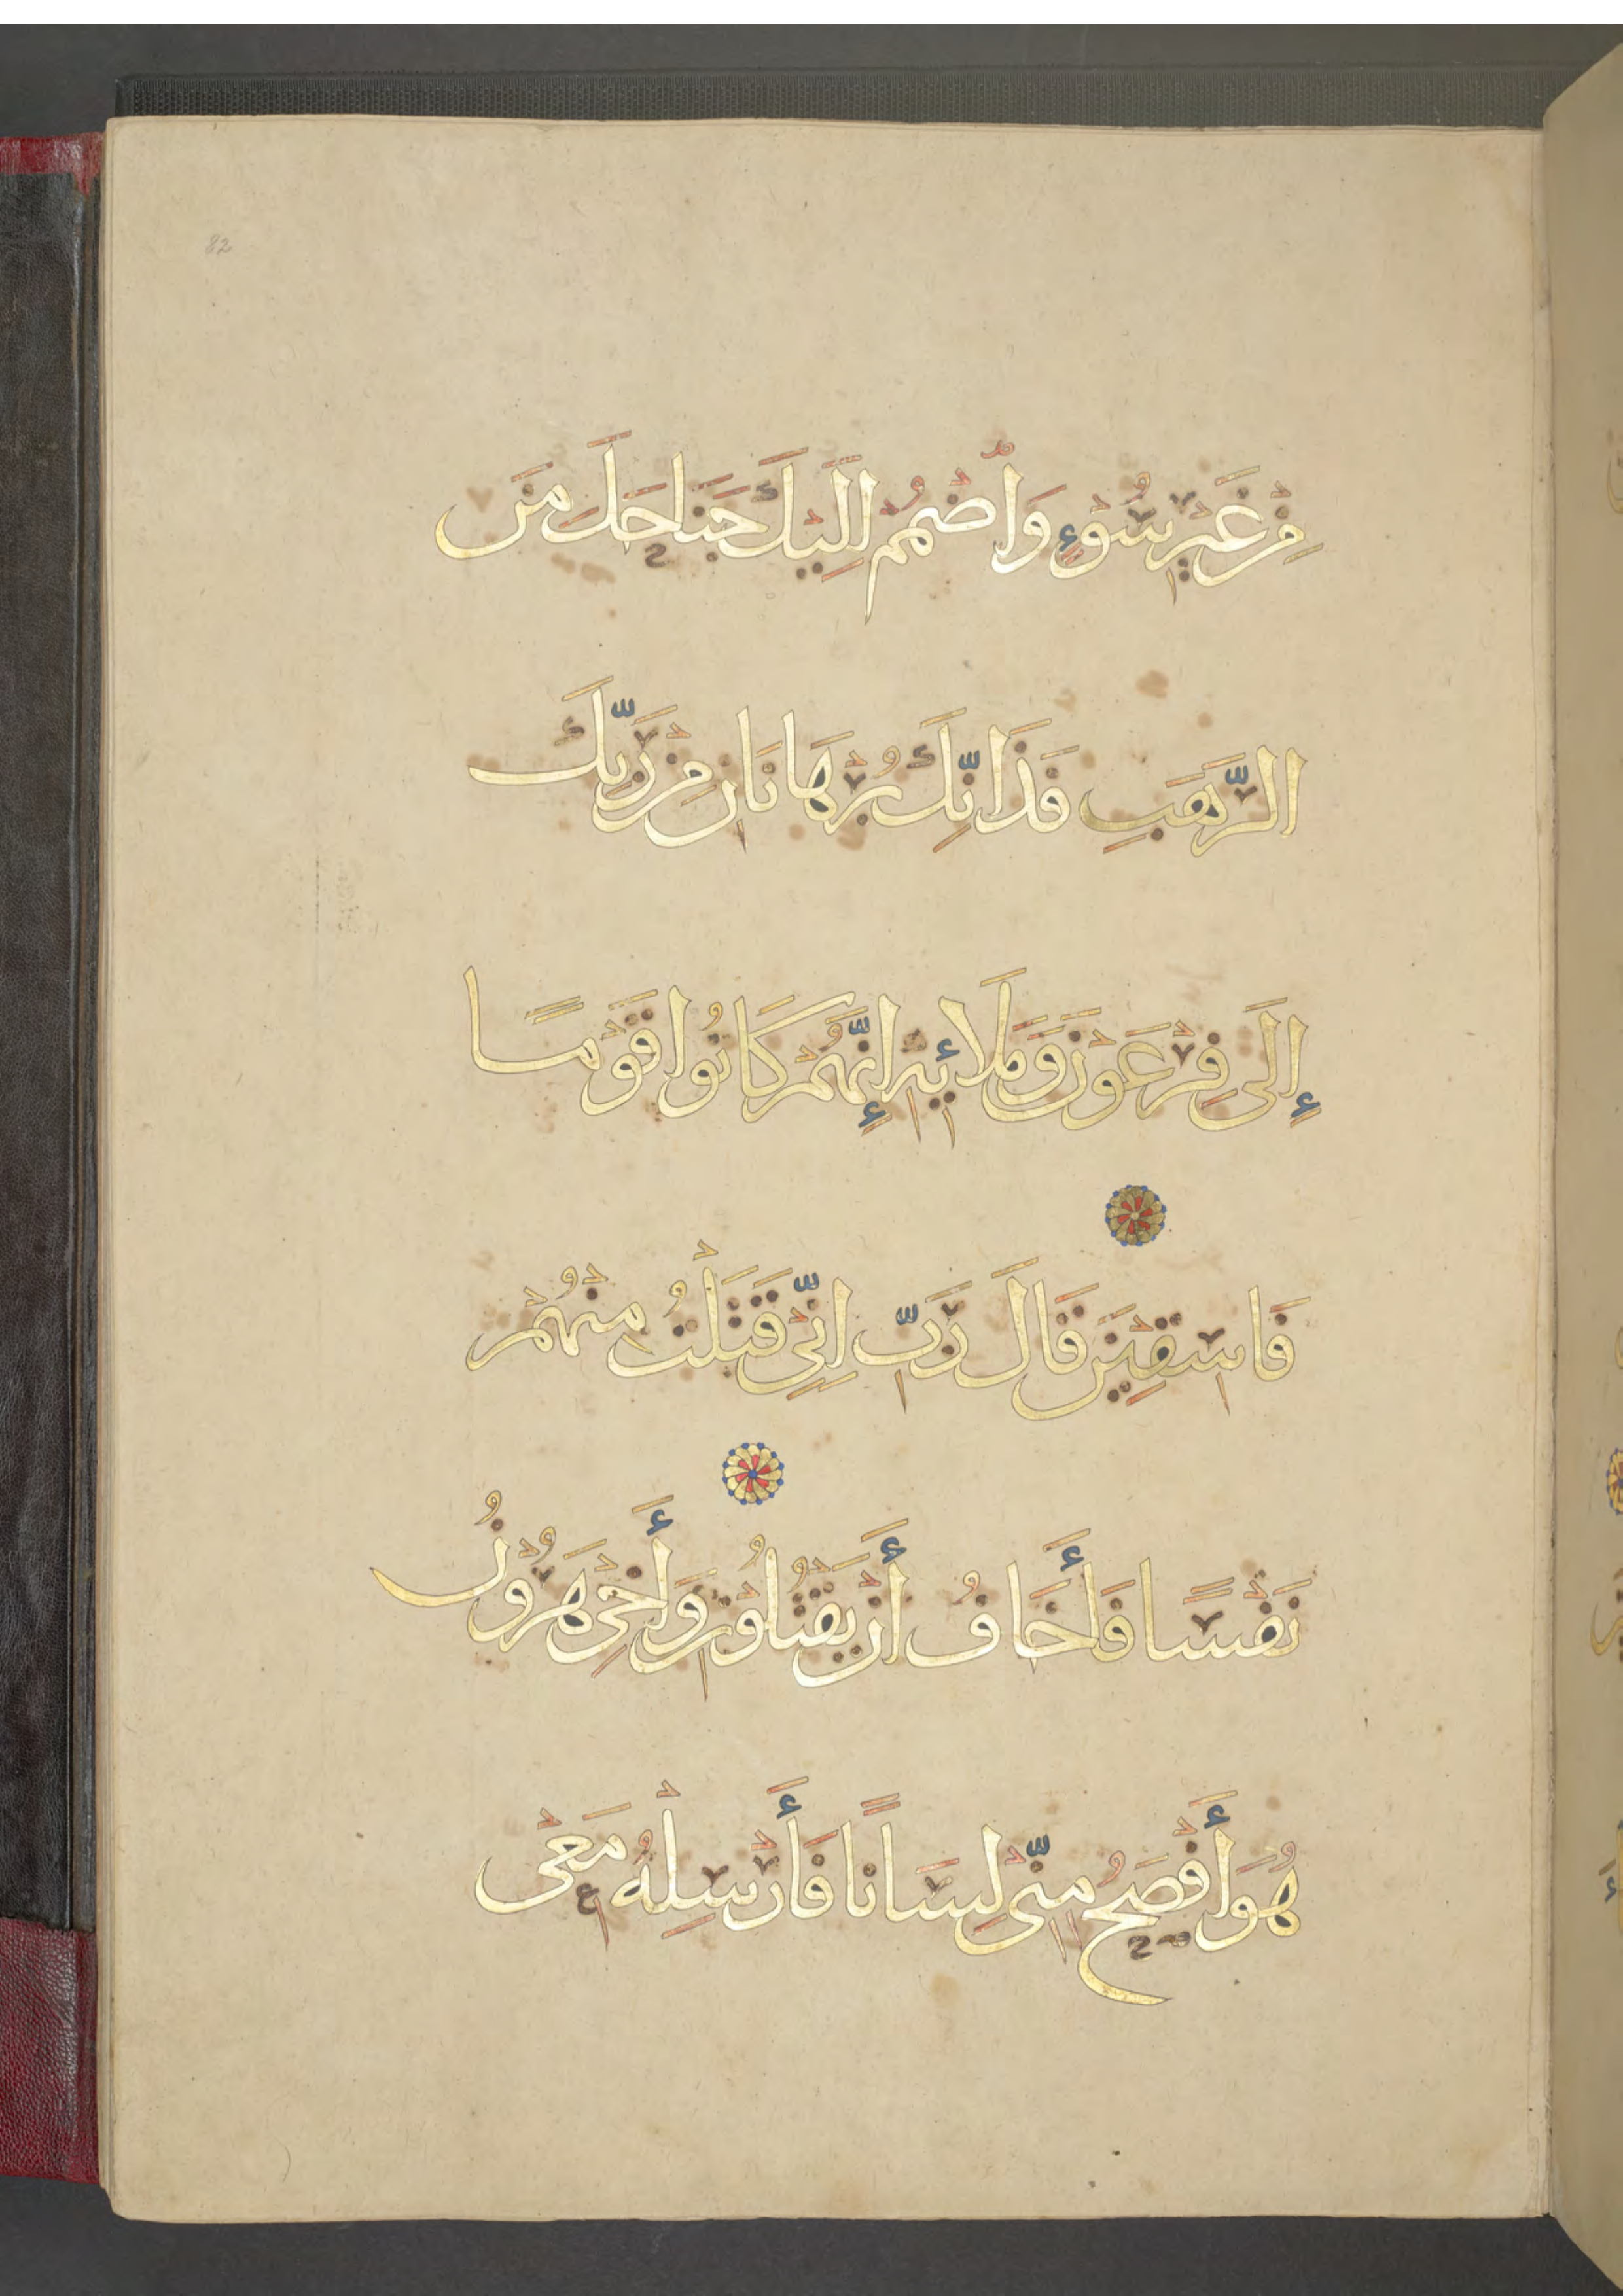 82
مِنْ غَيْرِ سُوْءٍ وَاضْمُمْ اِلَيْكَ جَنَاحَكَ مِنَ
الرَّهَبِ فَذَانِّكَ بُرْهَانَانِ مِنْ رَبِّكَ
إِلَى فِرْعَوْنَ وَمَلَائِهِ إِنَّهُمْ كَانُوا قَوْمًا
فَاسِقِيْنَ قَالَ رَبِّ اِنِّيْ قَتَلْتُ مِنْهُمْ
نَفْسًا فَأَخَافُ أَنْ يَقْتُلُوْنِ وَأَخِيْ هَرُوْنُ
هُوَ أَفْصَحُ مِنِّيْ لِسَانًا فَأَرْسِلْهُ مَعِيْ